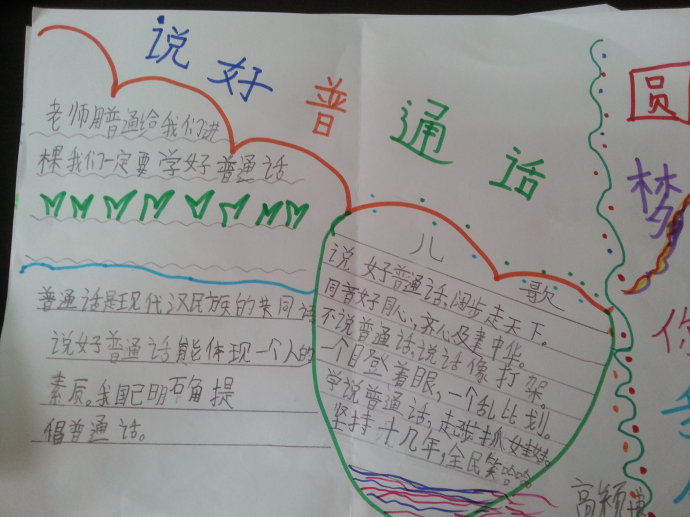 说好普通话
老师用普通给我们进
棵我们一定要学好普通话
普通话是现代汉民族的共同话
说好普通话能体现一个人的
素质。我国已明石角提
倡普通话。
儿歌
说好普通话,阔步走天下。
同音好同心,齐心及建中华。
不说普通话,说话像打架。
一个目登着眼,一个乱比划。
学说普通话,起步抓娃娃。
坚持十几年,全民笑哈哈。
高颖博
圆
梦
你